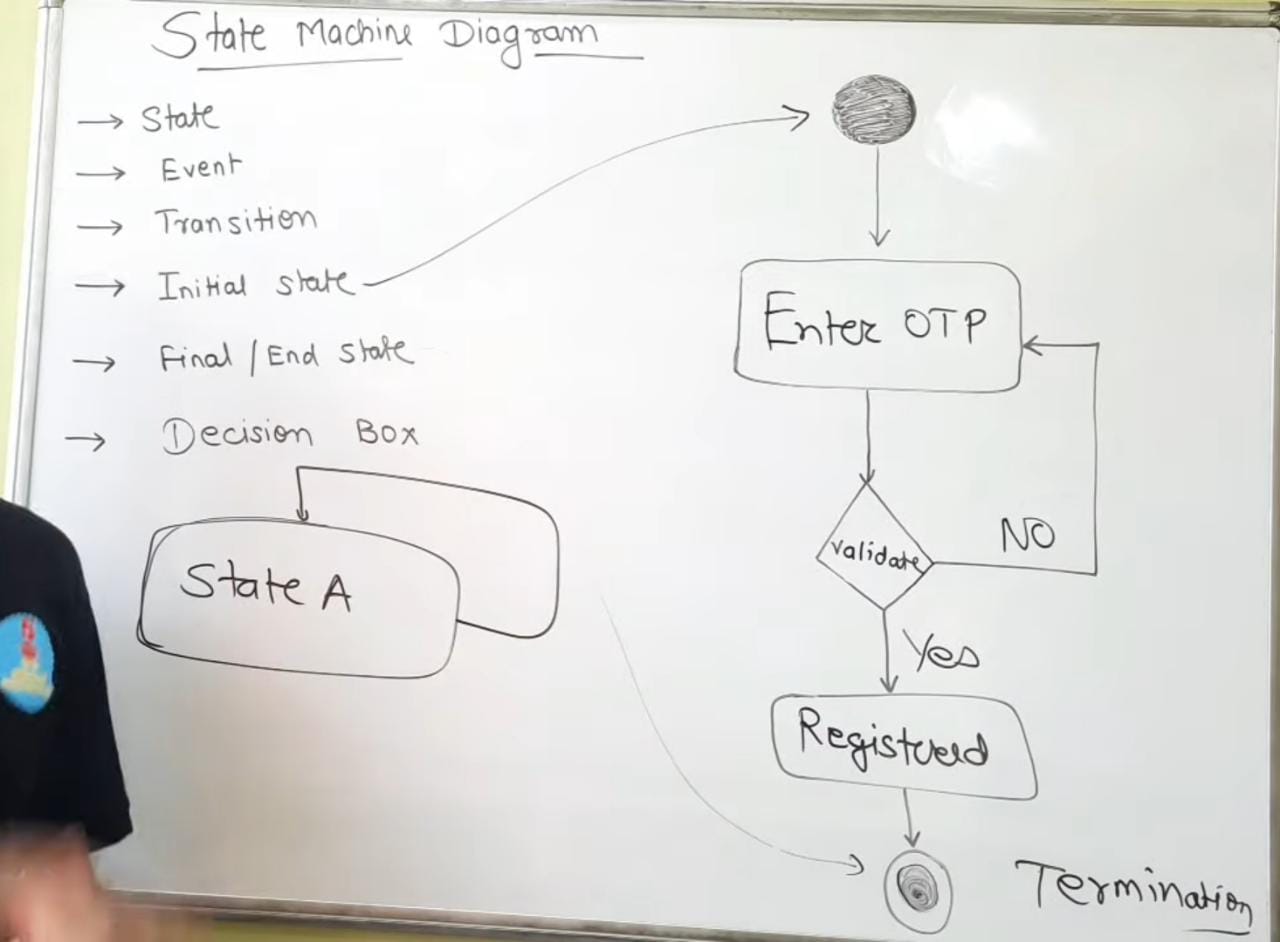 State Machine Diagram
→ State
→ Event
→ Transition
→ Initial state
→ Final / End state
→ Decision Box
State A
Enter OTP
validate
NO
Yes
Registered
Termination